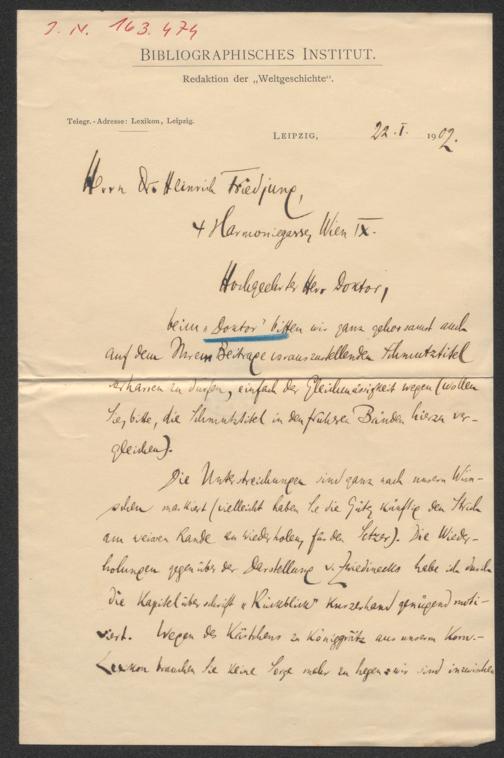 J. N. 163.474
BIBLIOGRAPHISCHES INSTITUT.
Redaktion der „Weltgeschichte“.
Telegr.-Adresse: Lexikon, Leipzig.
LEIPZIG, 22. I. 1902.
Herrn Dr. Heinrich Friedjung,
4 Harmoniegasse, Wien IX.
Hochgeehrter Herr Doktor,
beim „Doktor“ bitten wir ganz gehorsamst auch
auf dem Ihrem Beitrage vorauszustellenden Schmutztitel
verharren zu dürfen, einfach der Gleichmässigkeit wegen (wollen
Sie, bitte, die Schmutztitel in den frühern Bänden hierzu ver-
gleichen).
Die Unterstreichungen sind ganz nach unsern Wün-
schen markiert (vielleicht haben Sie die Güte, künftig den Strich
am weissen Rande zu wiederholen, für den Setzer). Die Wieder-
holungen gegenüber der Darstellung v. Zwiedinecks habe ich durch
die Kapitelüberschrift „Rückblick“ kurzerhand genügend moti-
viert. Wegen des Kärtchens zu Königgrätz aus unserm Konv.-
Lexikon brauchen Sie keine Sorge mehr zu hegen: wir sind inzwischen